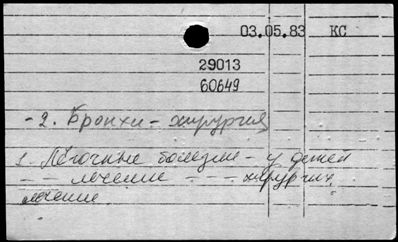 03.05.83 КС
29013
60649
- 2. Бронхи - хирургия
1. Лёгочные болезни - у детей
- - лечение - - хирургич.
лечение.